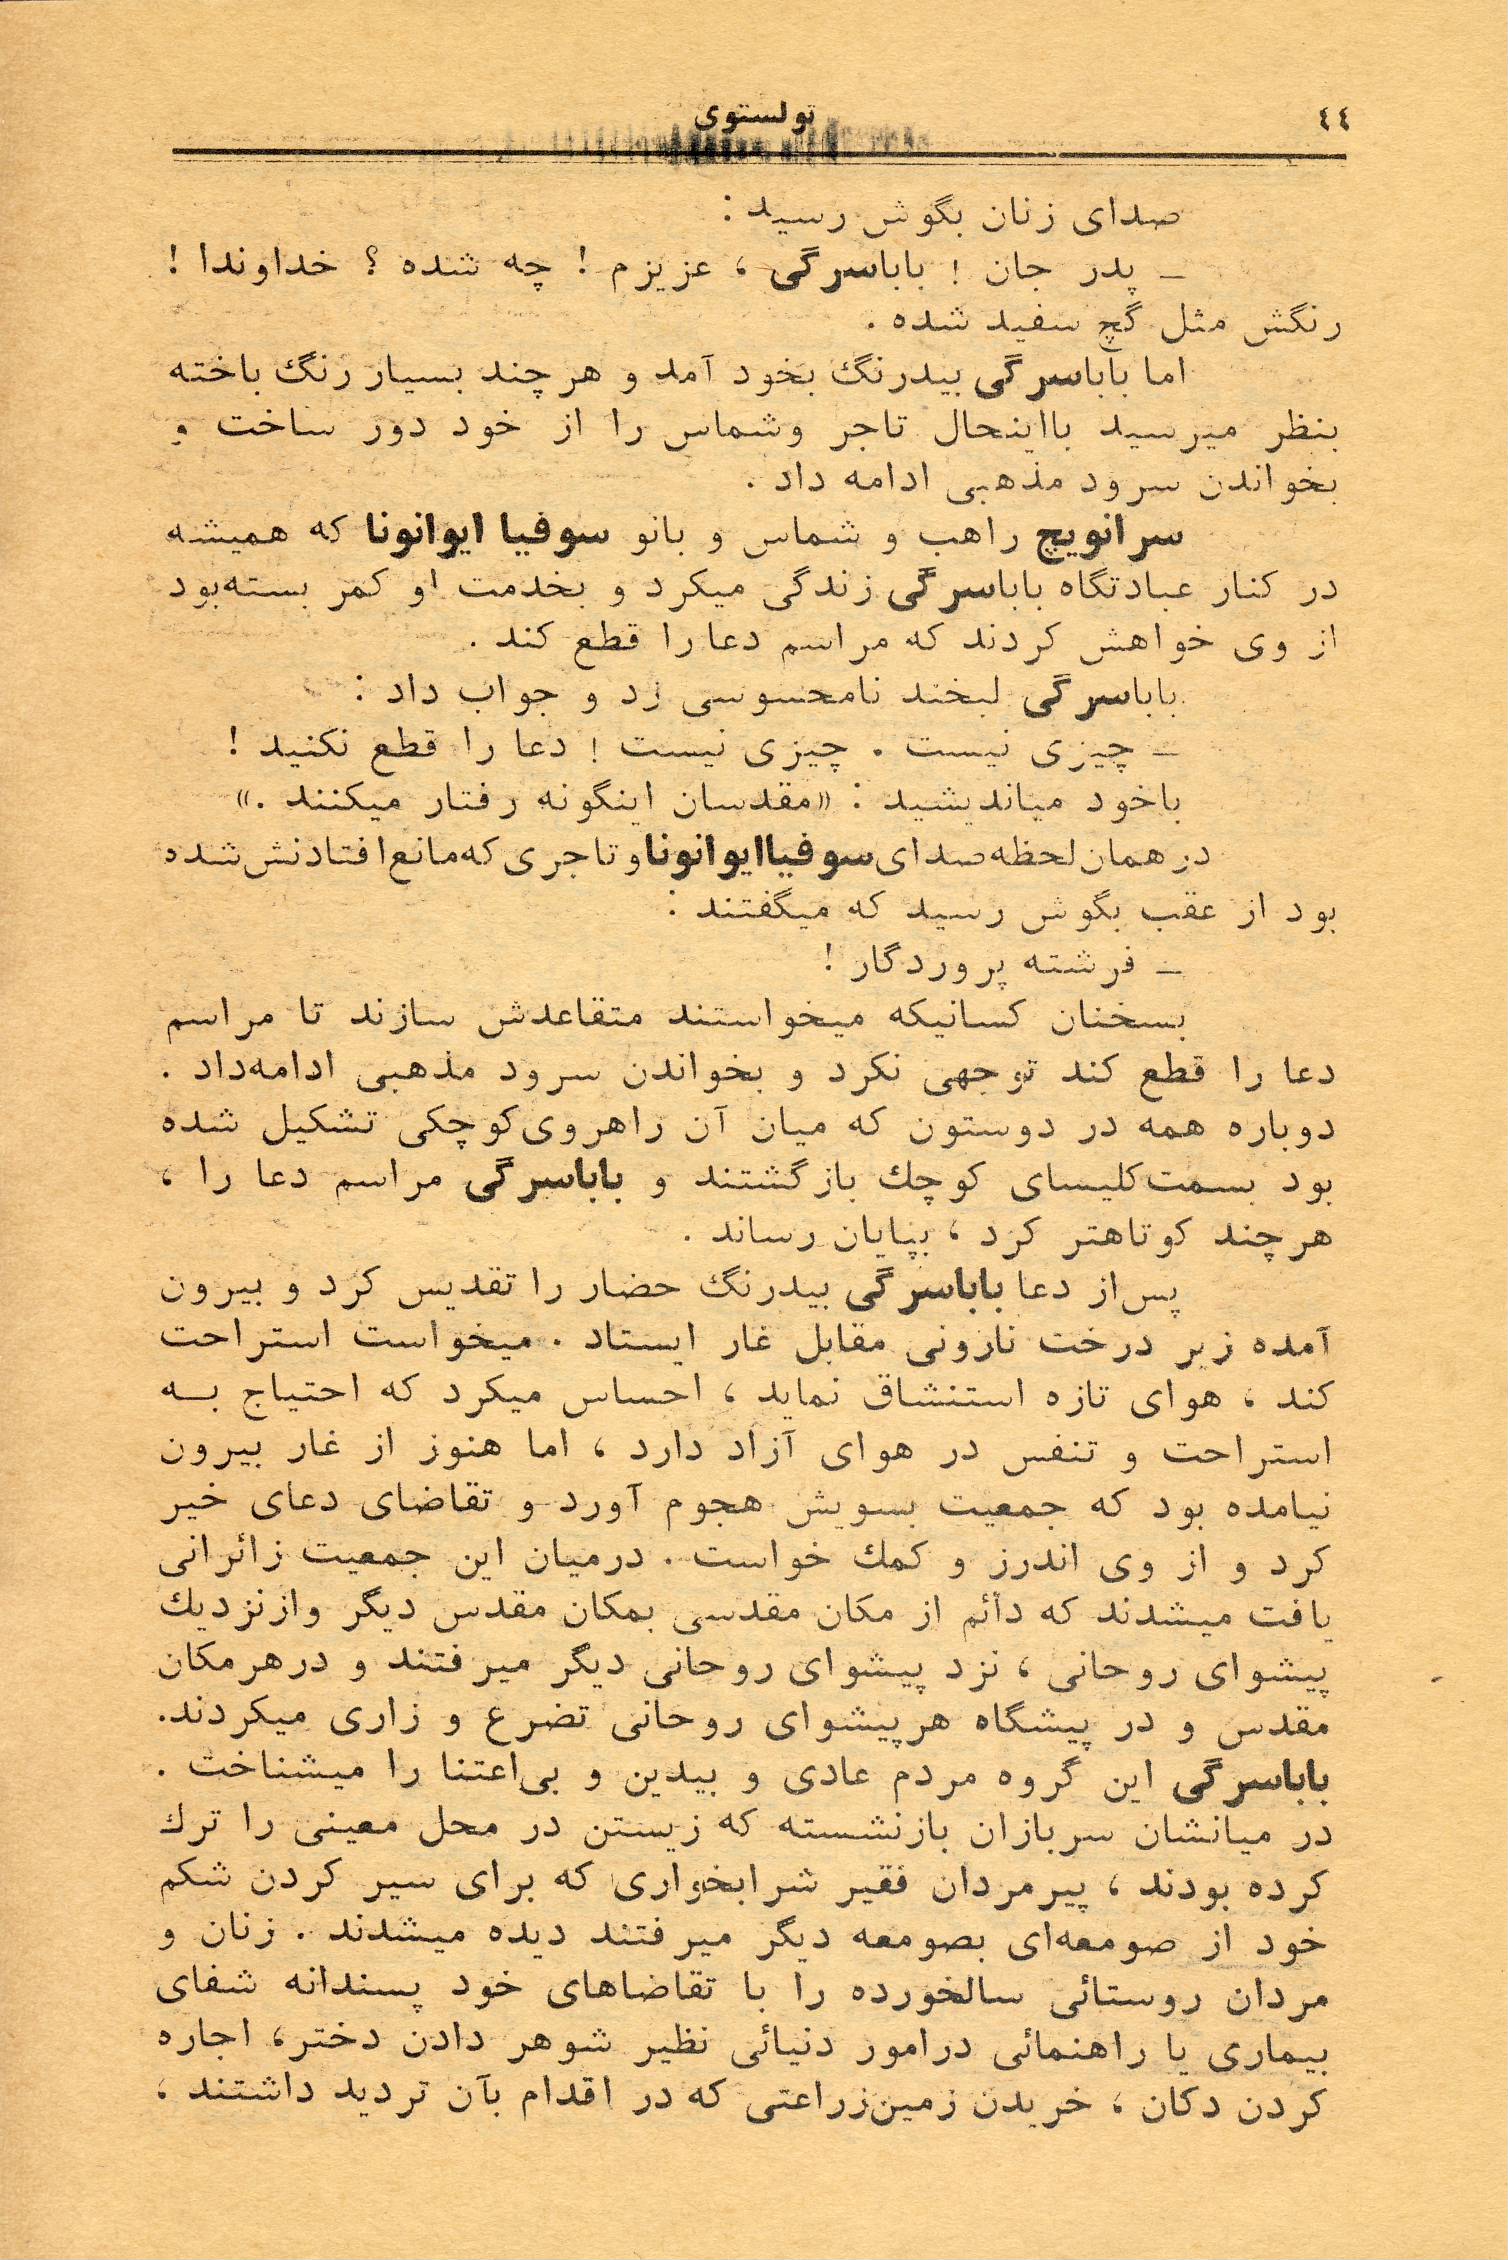 ٤٤
تولستوی
صدای زنان بگوش رسید :
ـ پدر جان ! باباسرگی ، عزیزم ! چه شده ؟ خداوندا !
رنگش مثل گچ سفید شده .
اما باباسرگی بیدرنگ بخود آمد و هرچند بسیار رنگ باخته
بنظر میرسید بااینحال تاجر وشماس را از خود دور ساخت و
بخواندن سرود مذهبی ادامه داد .
سرانویچ راهب و شماس و بانو سوفیا ایوانونا که همیشه
در کنار عبادتگاه باباسرگی زندگی میکرد و بخدمت او کمر بسته‌بود
از وی خواهش کردند که مراسم دعا را قطع کند .
باباسرگی لبخند نامحسوسی زد و جواب داد :
ـ چیزی نیست . چیزی نیست ! دعا را قطع نکنید !
باخود میاندیشید : «مقدسان اینگونه رفتار میکنند .»
در همان لحظه صدای سوفیا ایوانونا و تاجری که مانع افتادنش شده
بود از عقب بگوش رسید که میگفتند :
ـ فرشته پروردگار !
بسخنان کسانیکه میخواستند متقاعدش سازند تا مراسم
دعا را قطع کند توجهی نکرد و بخواندن سرود مذهبی ادامه‌داد .
دوباره همه در دوستون که میان آن راهروی‌کوچکی تشکیل شده
بود بسمت‌کلیسای کوچك بازگشتند و باباسرگی مراسم دعا را ،
هرچند کوتاهتر کرد ، بپایان رساند .
پس‌از دعا باباسرگی بیدرنگ حضار را تقدیس کرد و بیرون
آمده زیر درخت نارونی مقابل غار ایستاد . میخواست استراحت
کند ، هوای تازه استنشاق نماید ، احساس میکرد که احتیاج بـه
استراحت و تنفس در هوای آزاد دارد ، اما هنوز از غار بیرون
نیامده بود که جمعیت بسویش هجوم آورد و تقاضای دعای خیر
کرد و از وی اندرز و کمك خواست . درمیان این جمعیت زائرانی
یافت میشدند که دائم از مکان مقدسی بمکان مقدس دیگر وازنزدیك
پیشوای روحانی ، نزد پیشوای روحانی دیگر میرفتند و درهرمکان
مقدس و در پیشگاه هرپیشوای روحانی تضرع و زاری میکردند.
باباسرگی این گروه مردم عادی و بیدین و بی‌اعتنا را میشناخت .
در میانشان سربازان بازنشسته که زیستن در محل معینی را ترك
کرده بودند ، پیرمردان فقیر شرابخواری که برای سیر کردن شکم
خود از صومعه‌ای بصومعه دیگر میرفتند دیده میشدند . زنان و
مردان روستائی سالخورده را با تقاضاهای خود پسندانه شفای
بیماری یا راهنمائی درامور دنیائی نظیر شوهر دادن دختر، اجاره
کردن دکان ، خریدن زمین‌زراعتی که در اقدام بآن تردید داشتند ،